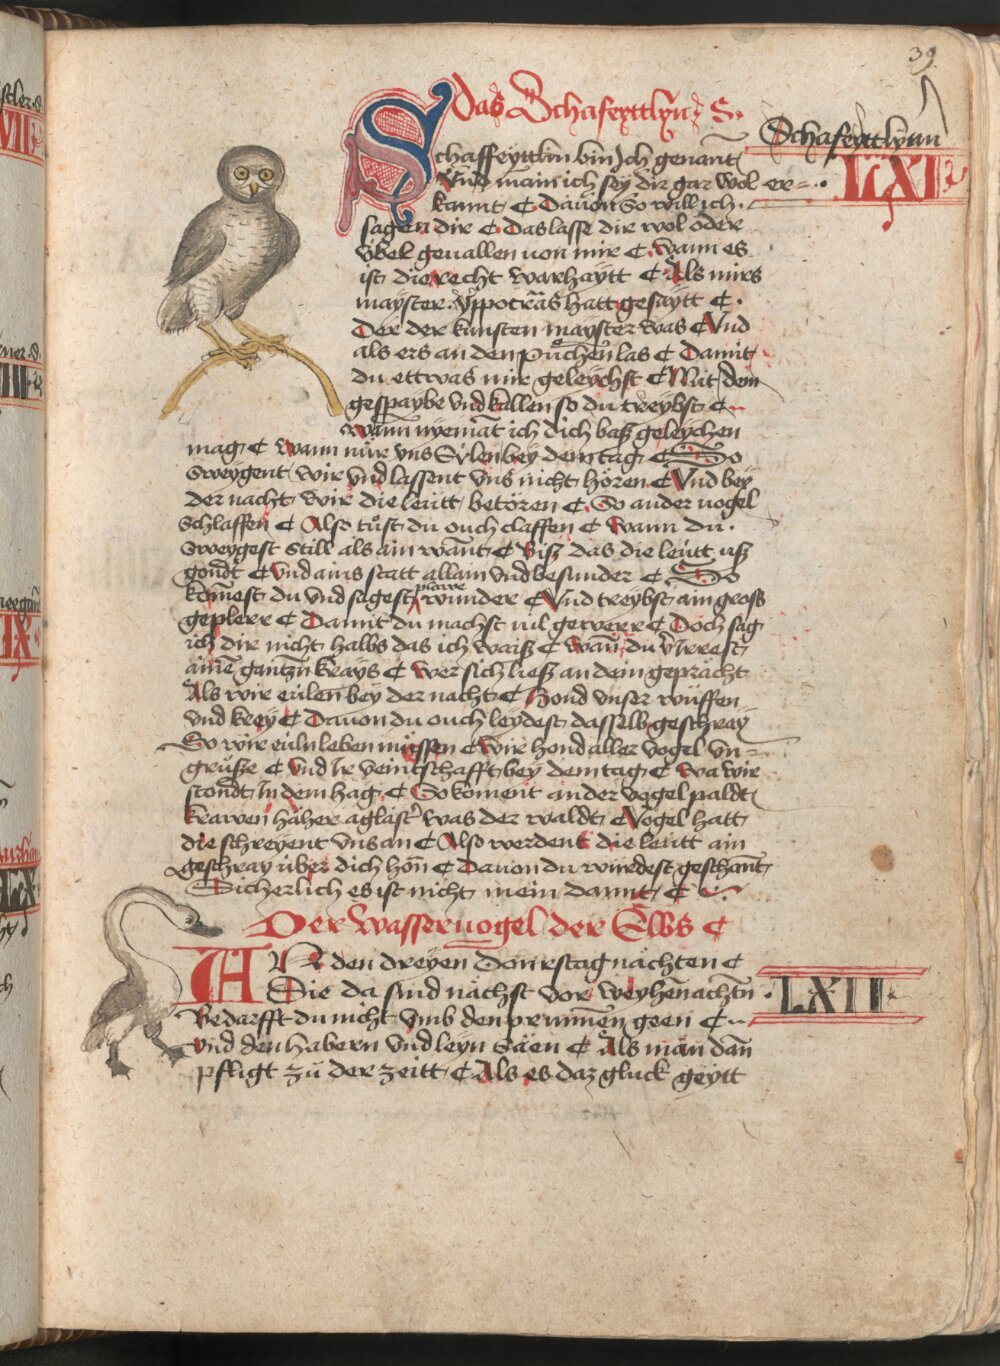 39
Das Schafeyttlyn S.
Schafeyttlynn
LXI
Schaffeyttlin bin Jch genant
Vnd main ich sey dir gar wol er=
kannt ¢ Dauon So will ich
sagen dir ¢ Das lasse dir wol oder
v̈bel geuallen von mir ¢ wann es
ist die recht warhaytt ¢ Als mirs
mayster ypocras hatt gesaytt ¢
Der der künsten mayster was ¢ Vnd
als ers an den püchen las ¢ Damit
du ettwas mir geleychst ¢ Mit dem
gespaybe vnd kallen so du treybst ¢
wann nyemāt ich dich bas geleychen
mag ¢ wann nür vns Eylen bey dem tag ¢ So
sweygent wir vnd lassent vns nicht hören ¢ Vnd bey
der nacht wir die leütt betören ¢ So ander uogel
schlaffen ¢ Also tüst du ouch claffen ¢ wann du
sweygest still als ain want ¢ Bisz das die leütt usz
gondt ¢ vnd ains statt allain vnd besunder ¢ So
komest du vnd sagest plawe wunder ¢ Vnd treybst ain gross
geplerr ¢ Damit du machst uil gewerr ¢ Doch sag
ich dir nicht halbs das ich waisz ¢ wān du v̈irrest
ainē gantzn krays ¢ wer sich liesz an dein geprächt
Als wir eülen bey der nacht ¢ Hond vnser wüffen
vnd krey ¢ Dauon du ouch leydest dasselb geschray
So wir eüln leben müssen ¢ wir hond aller vogel vn=
grüsze ¢ vnd Ir veintschafft bey dem tag ¢ wa wir
stondt in dem hag ¢ So koment ander vögel paldt
krawen häher aglastr was der waldt ¢ Vogel hatt
die schreyent vns an ¢ Also werdent die leütt ain
geschray über dich hōn ¢ Dauon du würdest geschant
Sicherlich es ist nicht mein dannt ¢
Der wasseruogel der Elbs ¢
LXII
AN den dreyen Donrstagnächten ¢
Die da sind nächst vor weyhenachtn
Bedarfft du nicht vmb den prunnen geen ¢
vnd den habern vnd leyn säen ¢ Als man dān
pfligt zü der zeitt ¢ Als es daz glück geytt